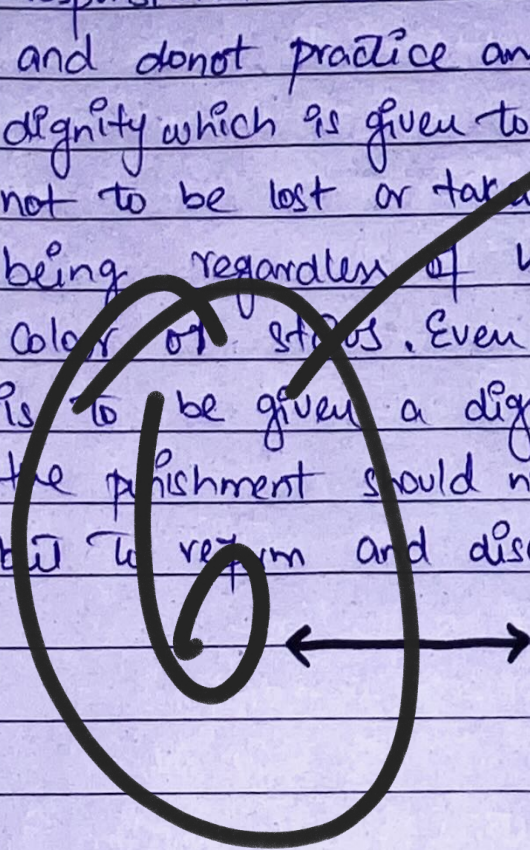 and donot practice an
dignity which is given to
not to be lost or tak
being regardless of
colour or status. Even
is to be given a dig
the punishment should n
but to reform and dis
6